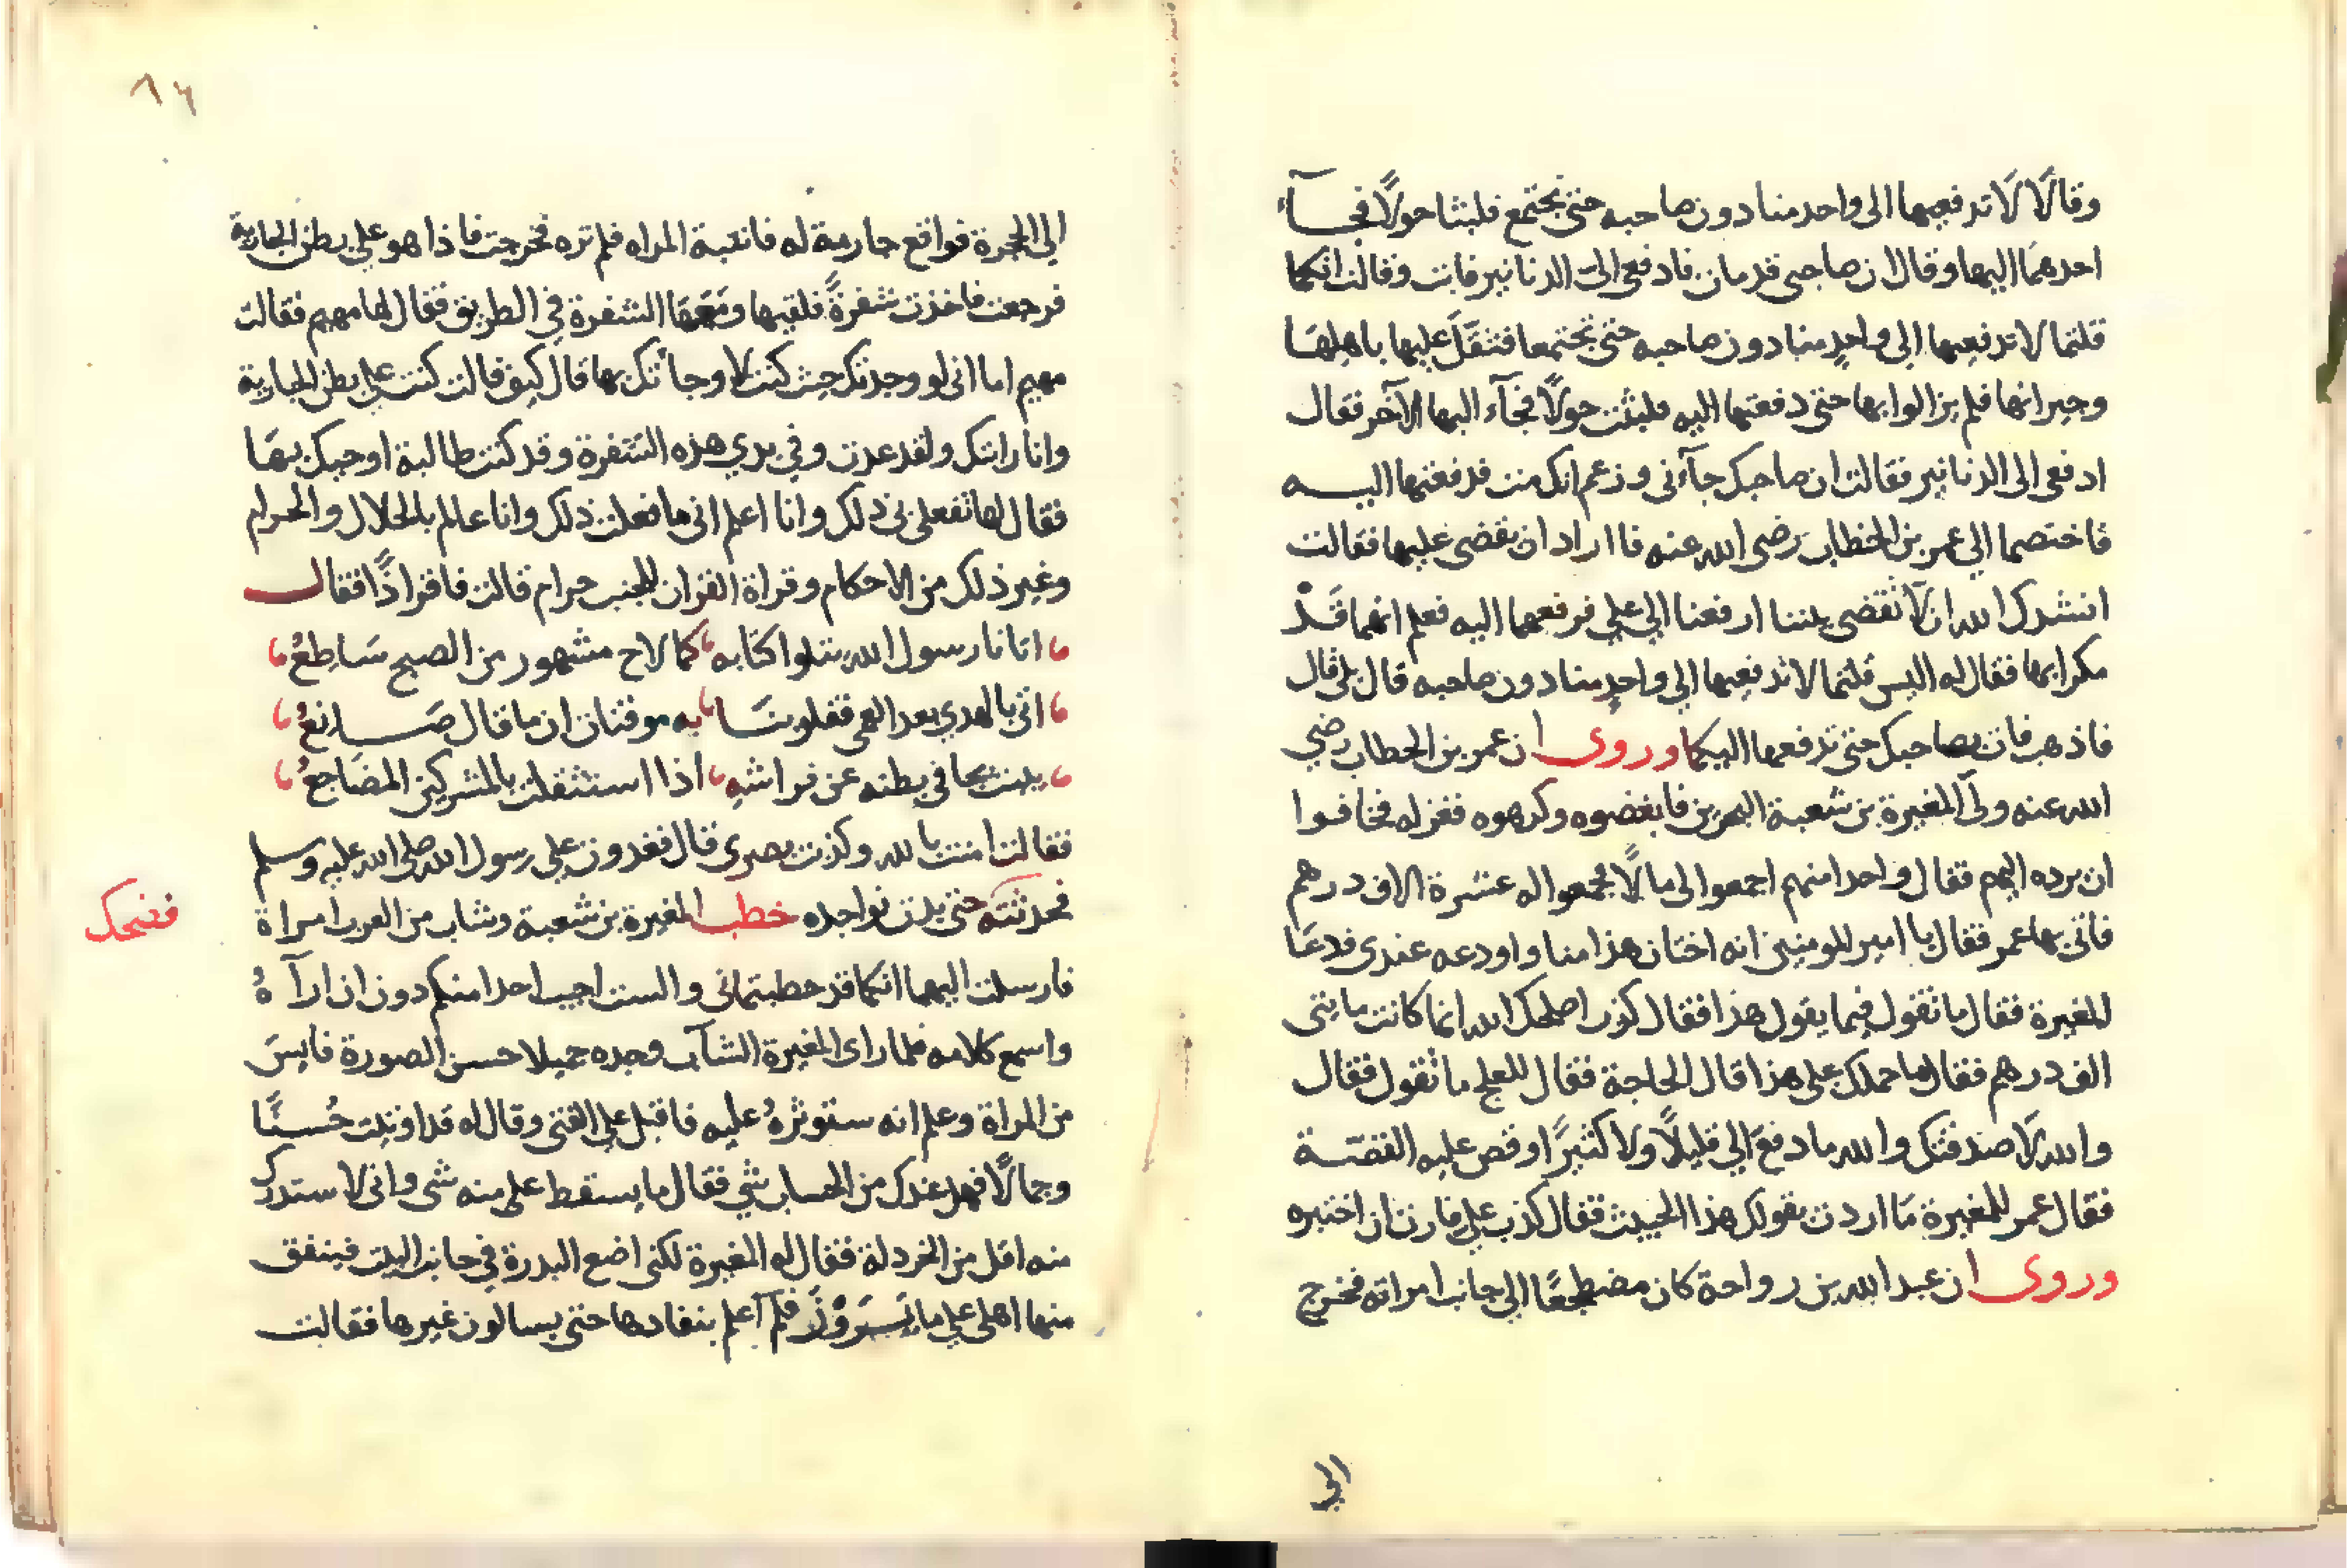 وقالا لا تدفعيها الى واحد منا دون صاحبه حتى نجتمع فلبثا حولا فجآء
احدهما اليها وقال ان صاحبى قد مات فادفعى الىّ الدنانير فابت وقالت انكما
قلتما لا تدفعيها الى واحدٍ منا دون صاحبه حتى نجتمعا فتثقّل عليها باهلها
وجيرانها فلم يزالوا بها حتى دفعتها اليه فلبثت حولًا فجآء اليها الآخر فقال
ادفعى الى الدنانير فقالت ان صاحبك جآءنى وزعم انك مت فدفعتها اليه
فاختصما الى عمر بن الخطاب رضى الله عنه فاراد ان يقضى عليها فقالت
انشدك الله ان لا تقضى بيننا ارفعنا الى على فرفعهما اليه فعلم انهما قَدْ
مكرا بها فقال له اليس قلتما لا تدفعيها الى واحدٍ منا دون صاحبه قال بلى قال
فاذهب فات بصاحبك حتى ندفعها اليكما وروى ان عمر بن الخطاب رضي
الله عنه ولّى المغيرة بن شعبة البحرين فابغضوه وكرهوه فعزله فخافوا
ان يرده اليهم فقال واحدا منهم اجمعوا الى مالًا فجمعوا له عشرة الاف درهم
فاتى بها عمر فقال يا امير المومنين انه اختان هذا منا واودعه عندى فدعا
المغيرة فقال ما تقول فيما يقول هذا فقال كذب اصلحك الله انما كانت مايتى
الف درهم فقال ما حملك على هذا قال الحاجة فقال للعلج ما تقول فقال
والله لَاصدقنك والله ما دفع الى قليلًا ولا كثيرًا وقص عليه القصّة
فقال عمر للمغيرة مَا اردت بقولك هذا الخبيث فقال كذب على فاردت ان اختبره
وروى ان عبد الله بن رواحة كان مضطجعًا الى جانب امراته فخرج
الى
٨٦
الى الحجرة فواقع جارية له فانتبهة المراه فلم تره فخرجت فاذا هو على بطن الجارية
فرجعت فاخذت شفرةً فلقيها ومَعَهَا الشفرة في الطريق فقال لها مهيم فقالت
مهيم اما انى لو وجدتك حيث كنت لاوجأتك بها قال كيف قالت كنت على بطن الجارية
وانا رايتك ولقد عدت وفي يدي هذه الشفرة وقد كنت طالبة اوجيك بها
فقال لها تفعلى بى ذلك وانا اعلم انى ما فعلت ذلك وانا عالم بالحلال والحرام
وغير ذلك من الاحكام وقراة القران للجنب حرام قالت فاقرا ذًا فقال
اتانا رسول الله يتلوا كتابه كما لاح مشهور من الصبح سَاطِعُ
اتى بالهدي بعد العمى فقلوبنا به موقنات ان ما قال صَانعُ
يبيت يجافى بطنه عن فراشهِ اذا استثقلت بالمشركين المضَاجعُ
فقالت امنت بالله وكذبت بصرى قال فغدوت على رسول الله صلى الله عليه وسلم
فحدثته حتى بدت نواجده خطب المغيرة بن شعبة وشاب من العرب امراة
فضحك
فارسلت اليهما انكما قد خطبتمانى والست اجيب احدا منكم دون ان ارآهُ
واسمع كلامه فلما راى المغيرة الشآب وجده جميلا حسن الصورة فايسَ
من المراة وعلم انه ستوثرهُ عليه فاقبل على الفتى وقال له قد اوتيت حُسنًا
وجمالًا فهل عندك من الحساب شي فقال ما يسقط على منه شى وانى لاستدرك
منه اقل من الخردلة فقال له المغيرة لكنى اضع البدرة في جانب البيت فينفق
منها اهلى على ما يريدون فلم اعلم بنفادها حتى يسالون غيرها فقالت